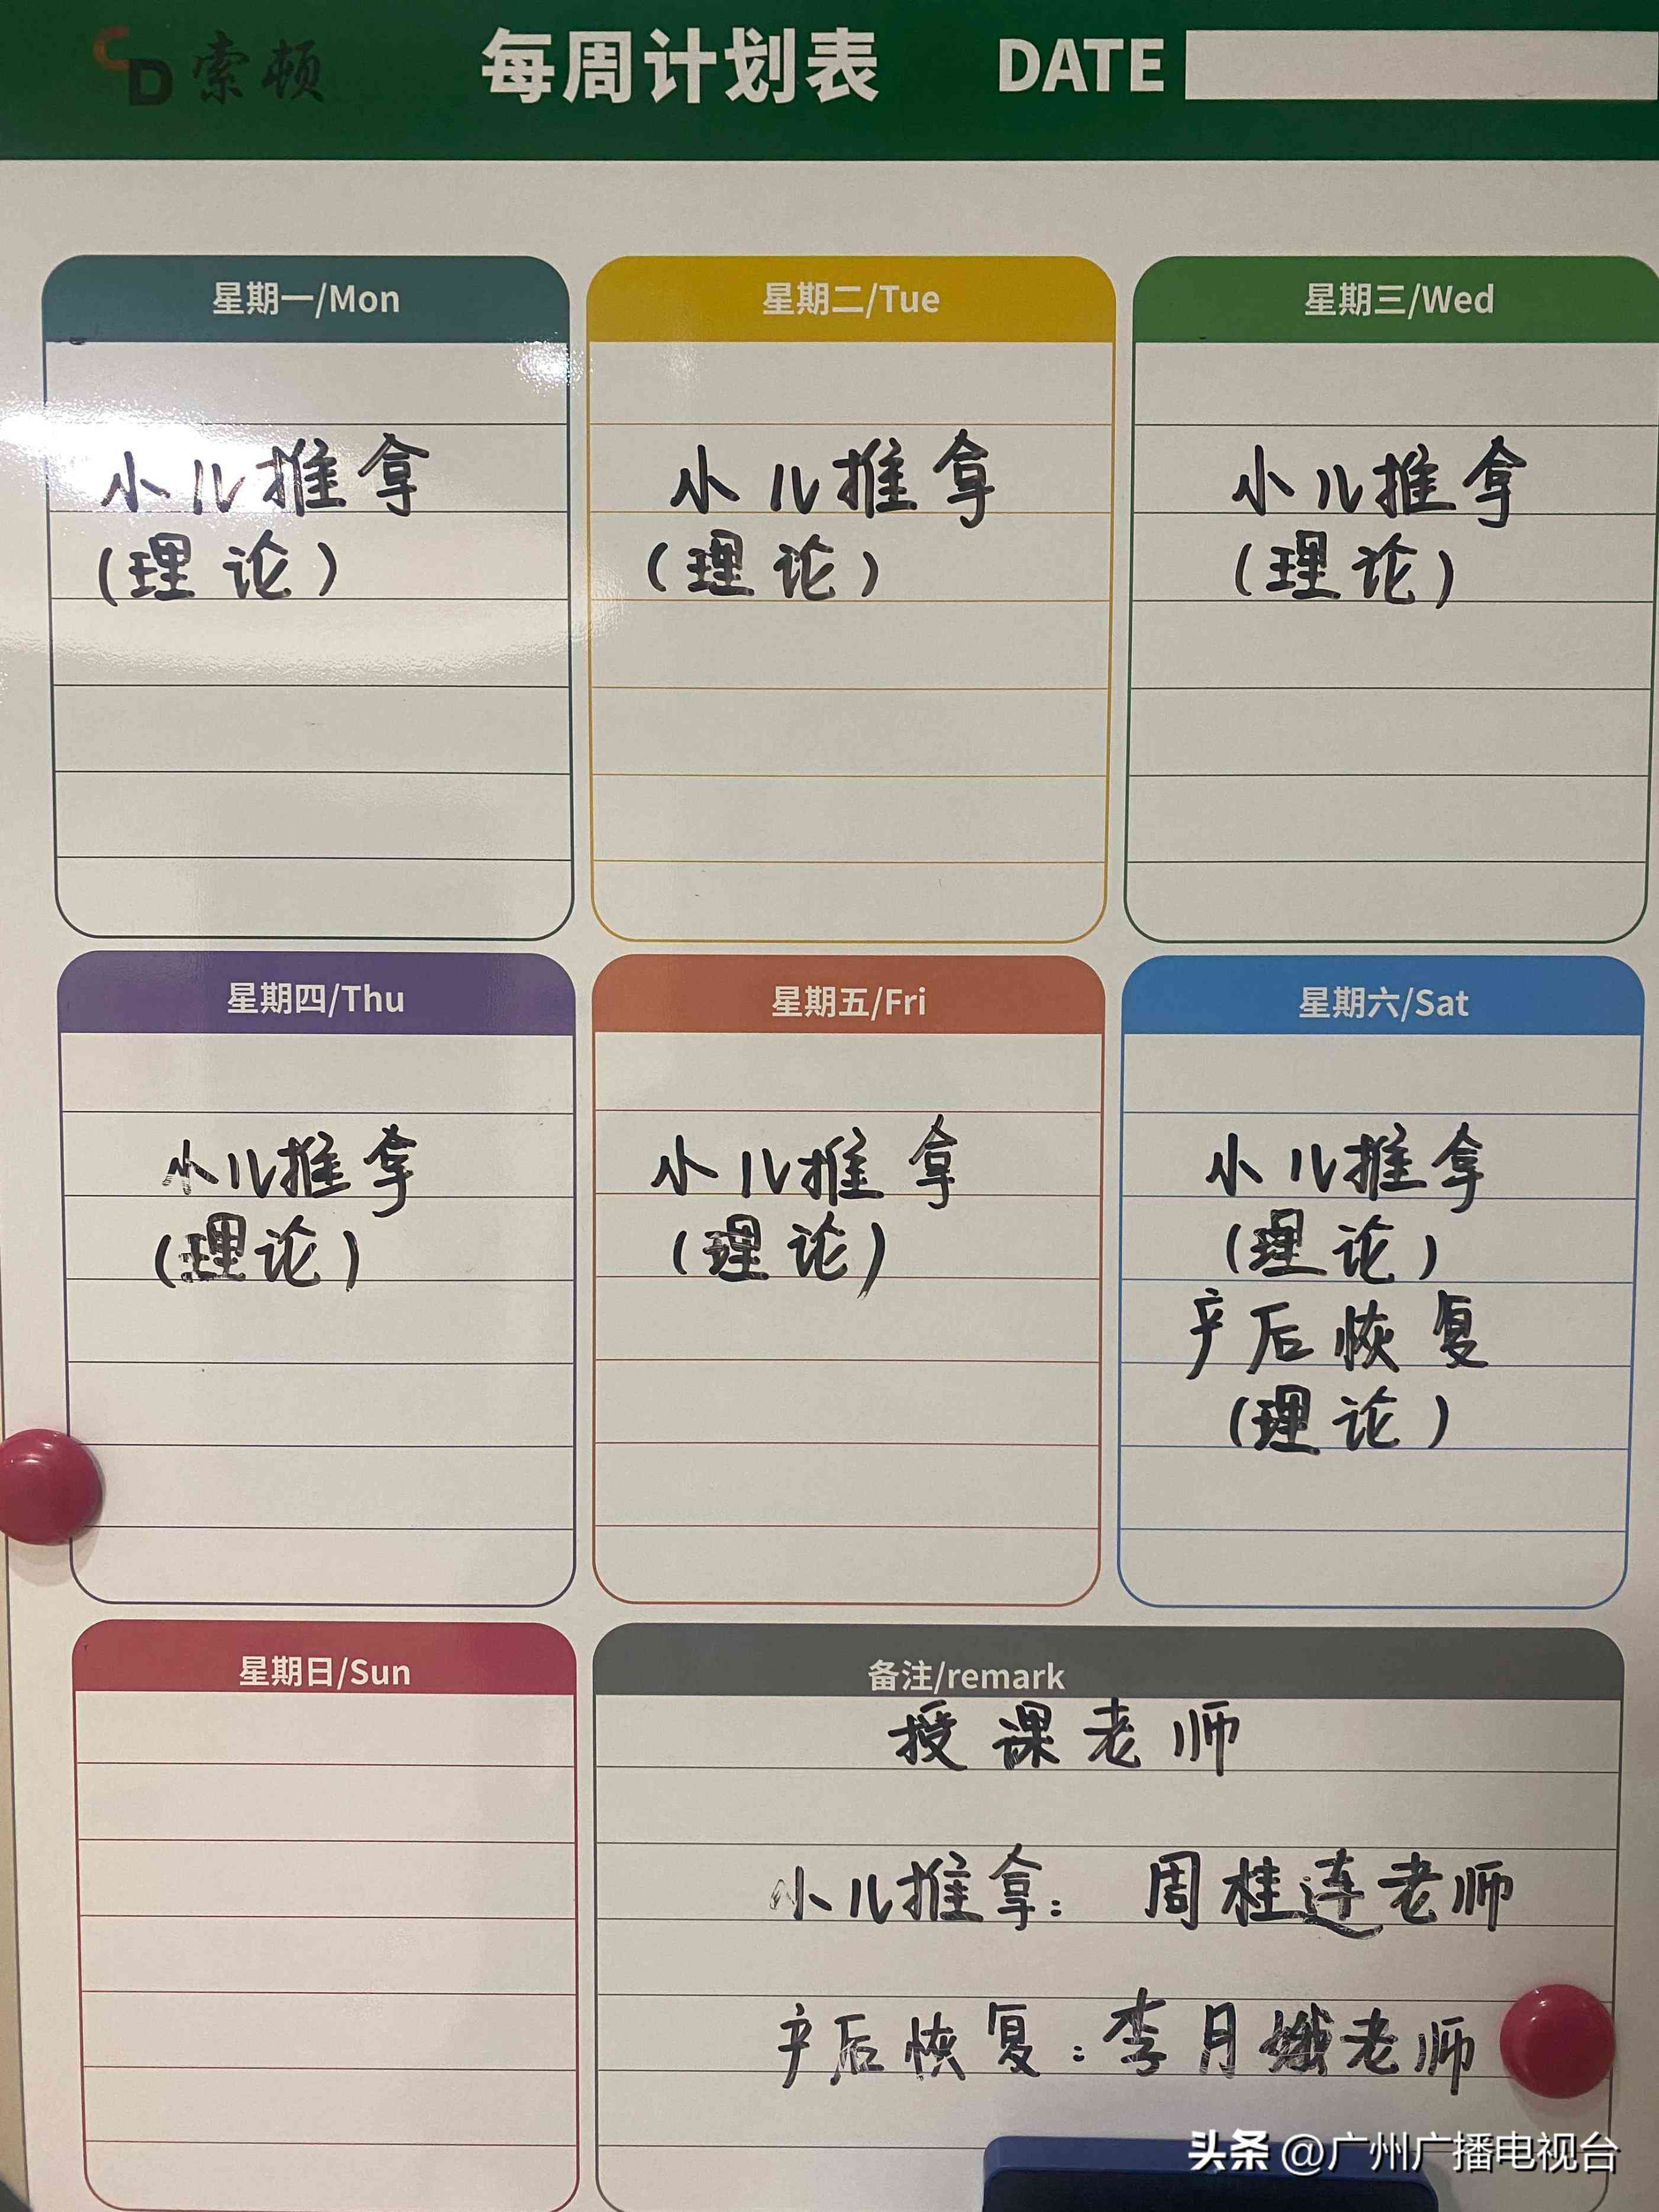 CD 索顿 每周计划表 DATE
星期一/Mon
小儿推拿
(理论)
星期二/Tue
小儿推拿
(理论)
星期三/Wed
小儿推拿
(理论)
星期四/Thu
小儿推拿
(理论)
星期五/Fri
小儿推拿
(理论)
星期六/Sat
小儿推拿
(理论)
产后恢复
(理论)
星期日/Sun
备注/remark
授课老师
小儿推拿：周桂连老师
产后恢复：李月娥老师
头条 @广州广播电视台